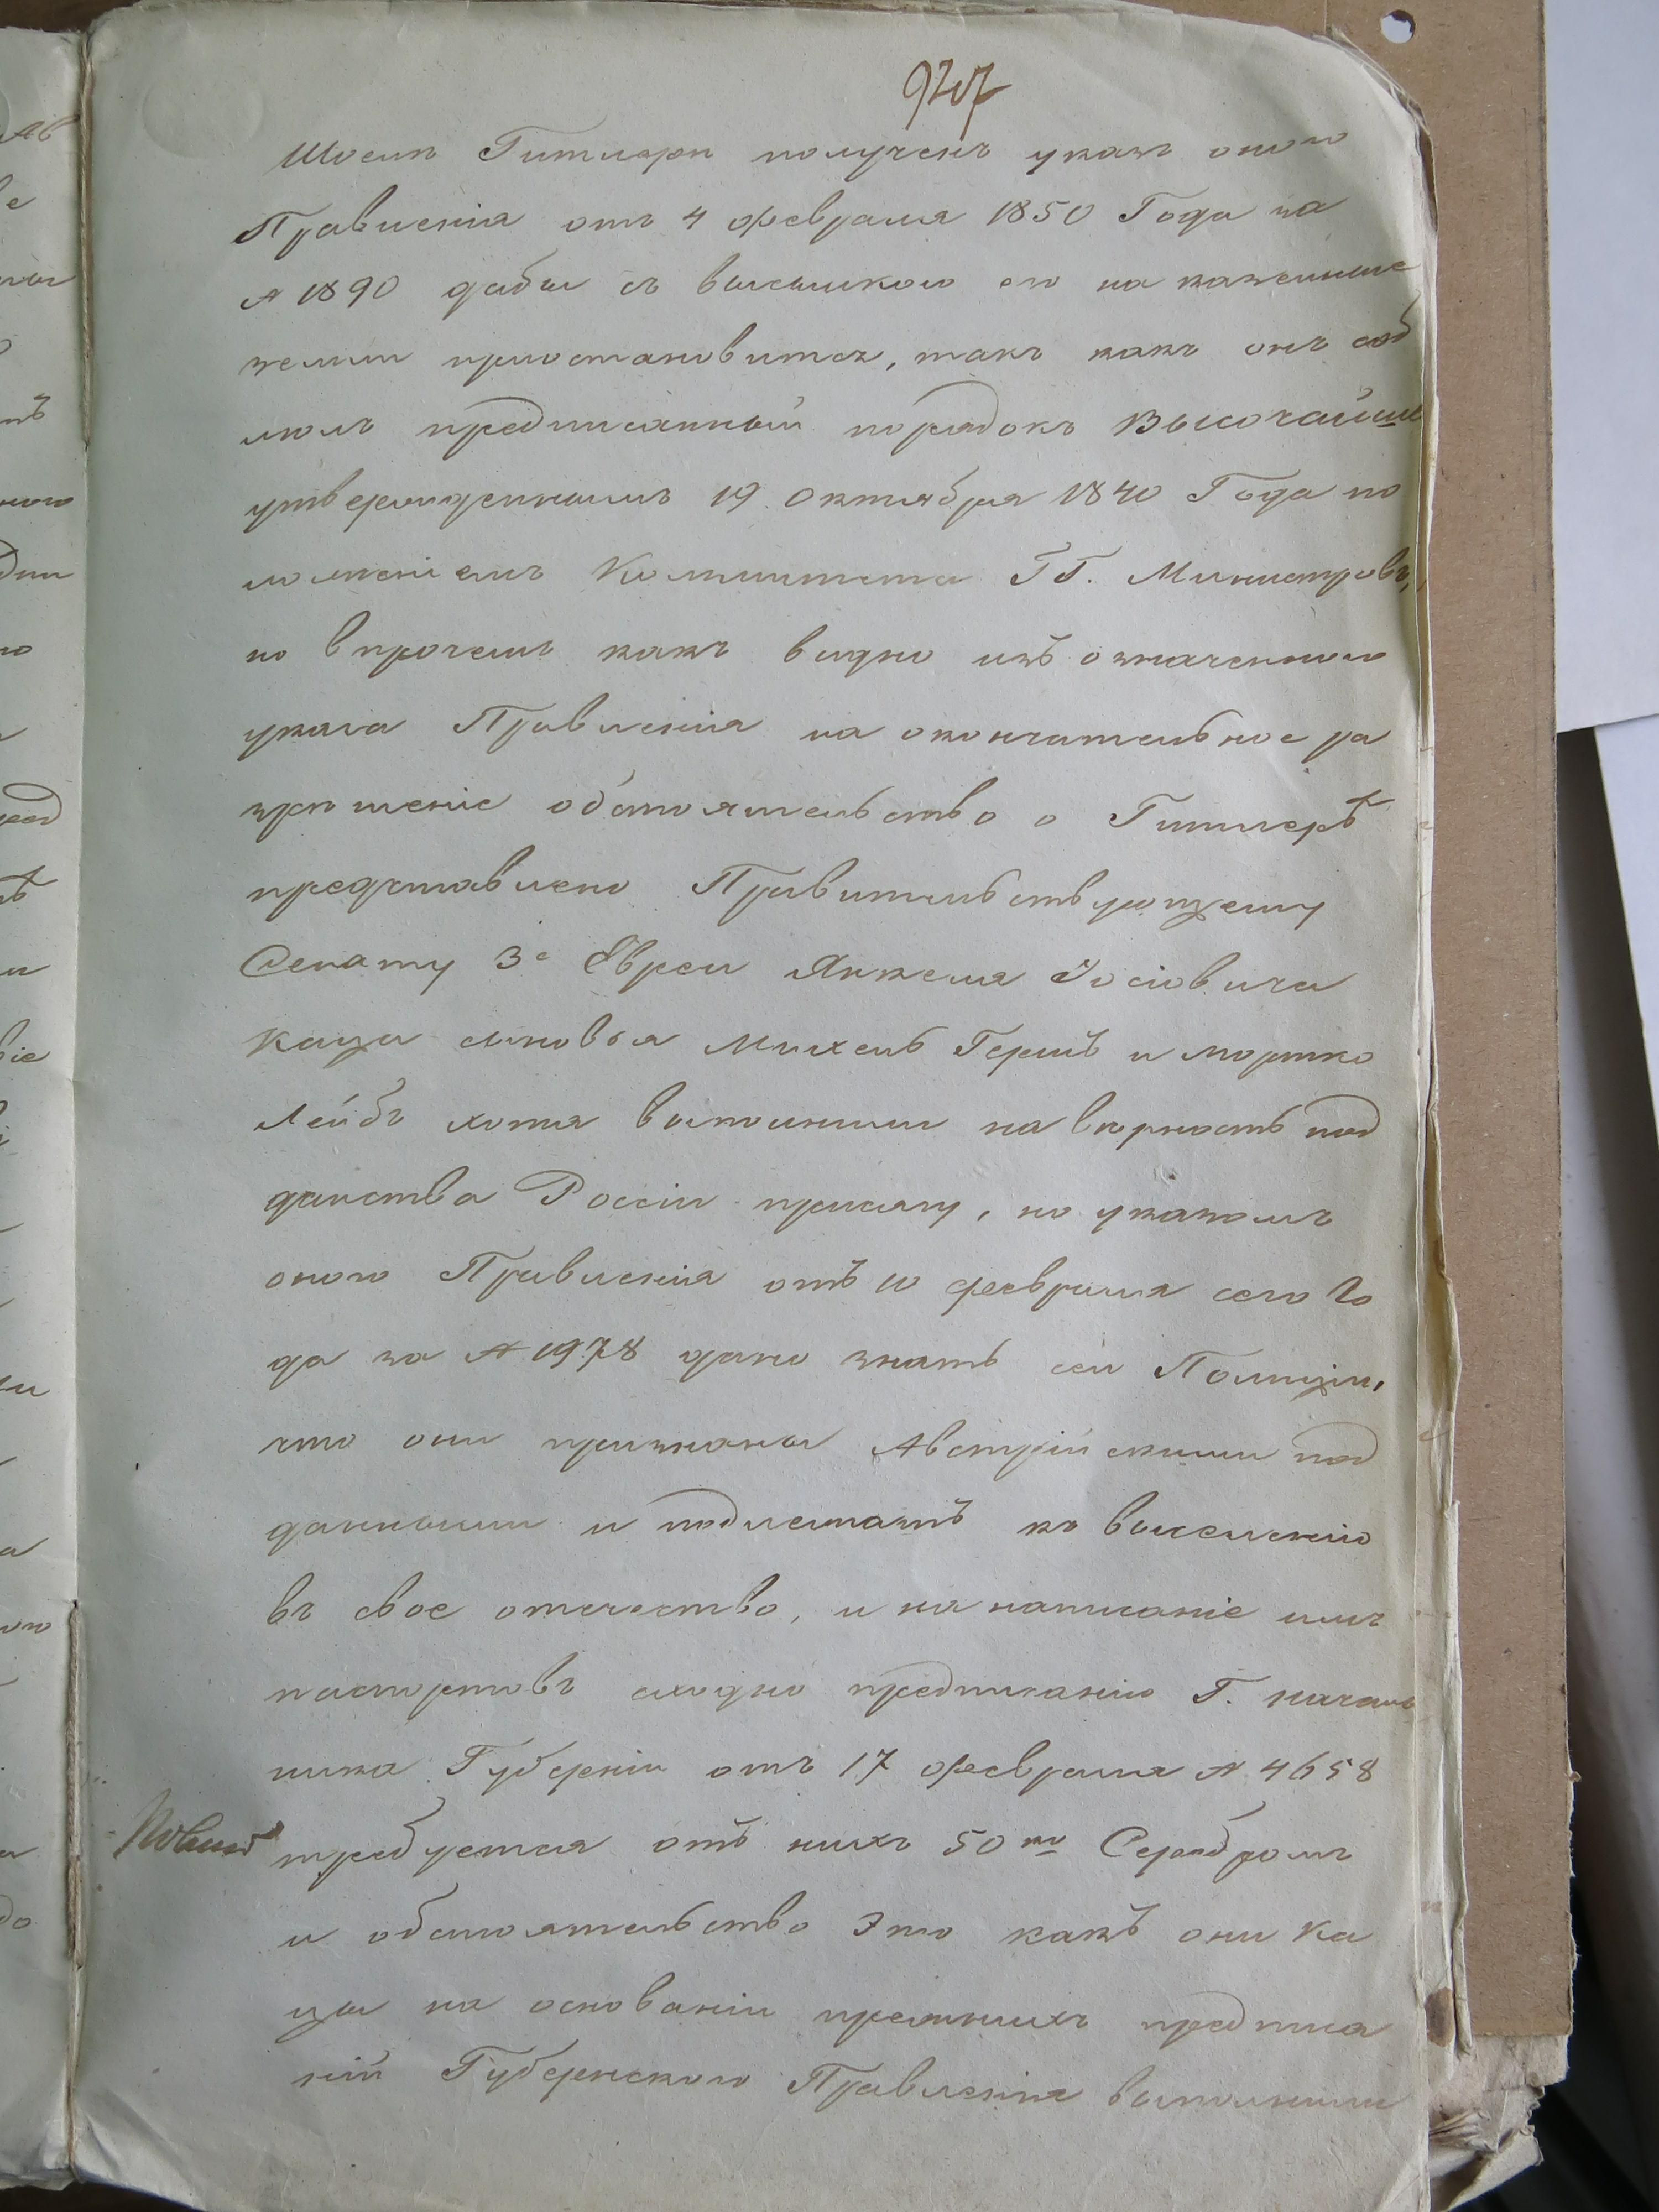 927
Шоелѣ Гитлерѣ полученъ указъ онаго
Правленія отъ 4 февраля 1850 Года за
№ 1890 дабы съ высылкою его на казенные
земли пріостановится, такъ какъ онъ соб
люлъ предписанный порядокъ Высочайше
утвержденнымъ 19 Октября 1840 Года по
ложеніемъ Комитета ГГ. Министровъ,
но впрочемъ какъ видно изъ означеннаго
указа Правленія на окончательное ра
зрѣшеніе обстоятельство о Гитлерѣ
представлено Правительствующему
Сенату 3е Евреи Янкеля Іосіовича
Каца сыновья Михель Гершъ и Мортко
Лейбъ хотя выполнили на вѣрность под
данства Россіи присягу, но указомъ
онаго Правленія отъ 10 февраля сего Го
да за № 1978 дано знать сей Полиціи,
что они признаны Австрійскими под
данными и подлежатъ къ выселенію
въ свое отечество, и на написаніе имъ
паспортовъ сходно предписанію Г. началь
ника Губерніи отъ 17 февраля № 4658
требуется отъ нихъ 50 ко Серебромъ
и обстоятельство это какъ они Ка
цы на основаніи прежнихъ предписа
ній Губернскаго Правленія выполнили